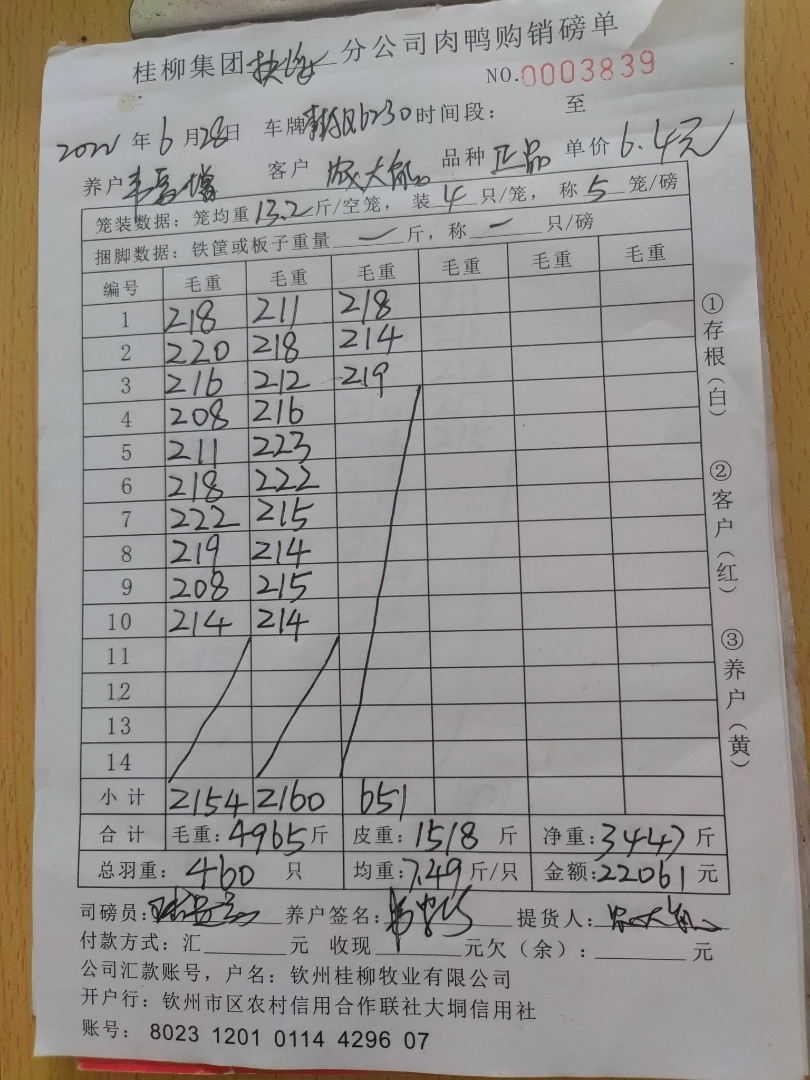 桂柳集团 分公司肉鸭购销磅单
NO.0003839
2022年6月28日 车牌 6230 时间段： 至
养户 客户 农大 品种 正品 单价 6.4元
笼装数据：笼均重13.2斤/空笼，装4只/笼，称5笼/磅
捆脚数据：铁筐或板子重量一斤，称一只/磅
编号 毛重 毛重 毛重 毛重 毛重 毛重
1 218 211 218
2 220 218 214
3 216 212 219
4 208 216
5 211 223
6 218 222
7 222 215
8 219 214
9 208 215
10 214 214
11
12
13
14
小计 2154 2160 651
合计 毛重：4965斤 皮重：1518斤 净重：3447斤
总羽重：460只 均重：7.49斤/只 金额：22061元
司磅员： 养户签名： 提货人：
付款方式：汇 元 收现 元欠（余）： 元
公司汇款账号，户名：钦州桂柳牧业有限公司
开户行：钦州市区农村信用合作联社大垌信用社
账号：8023 1201 0114 4296 07
①存根（白）
②客户（红）
③养户（黄）